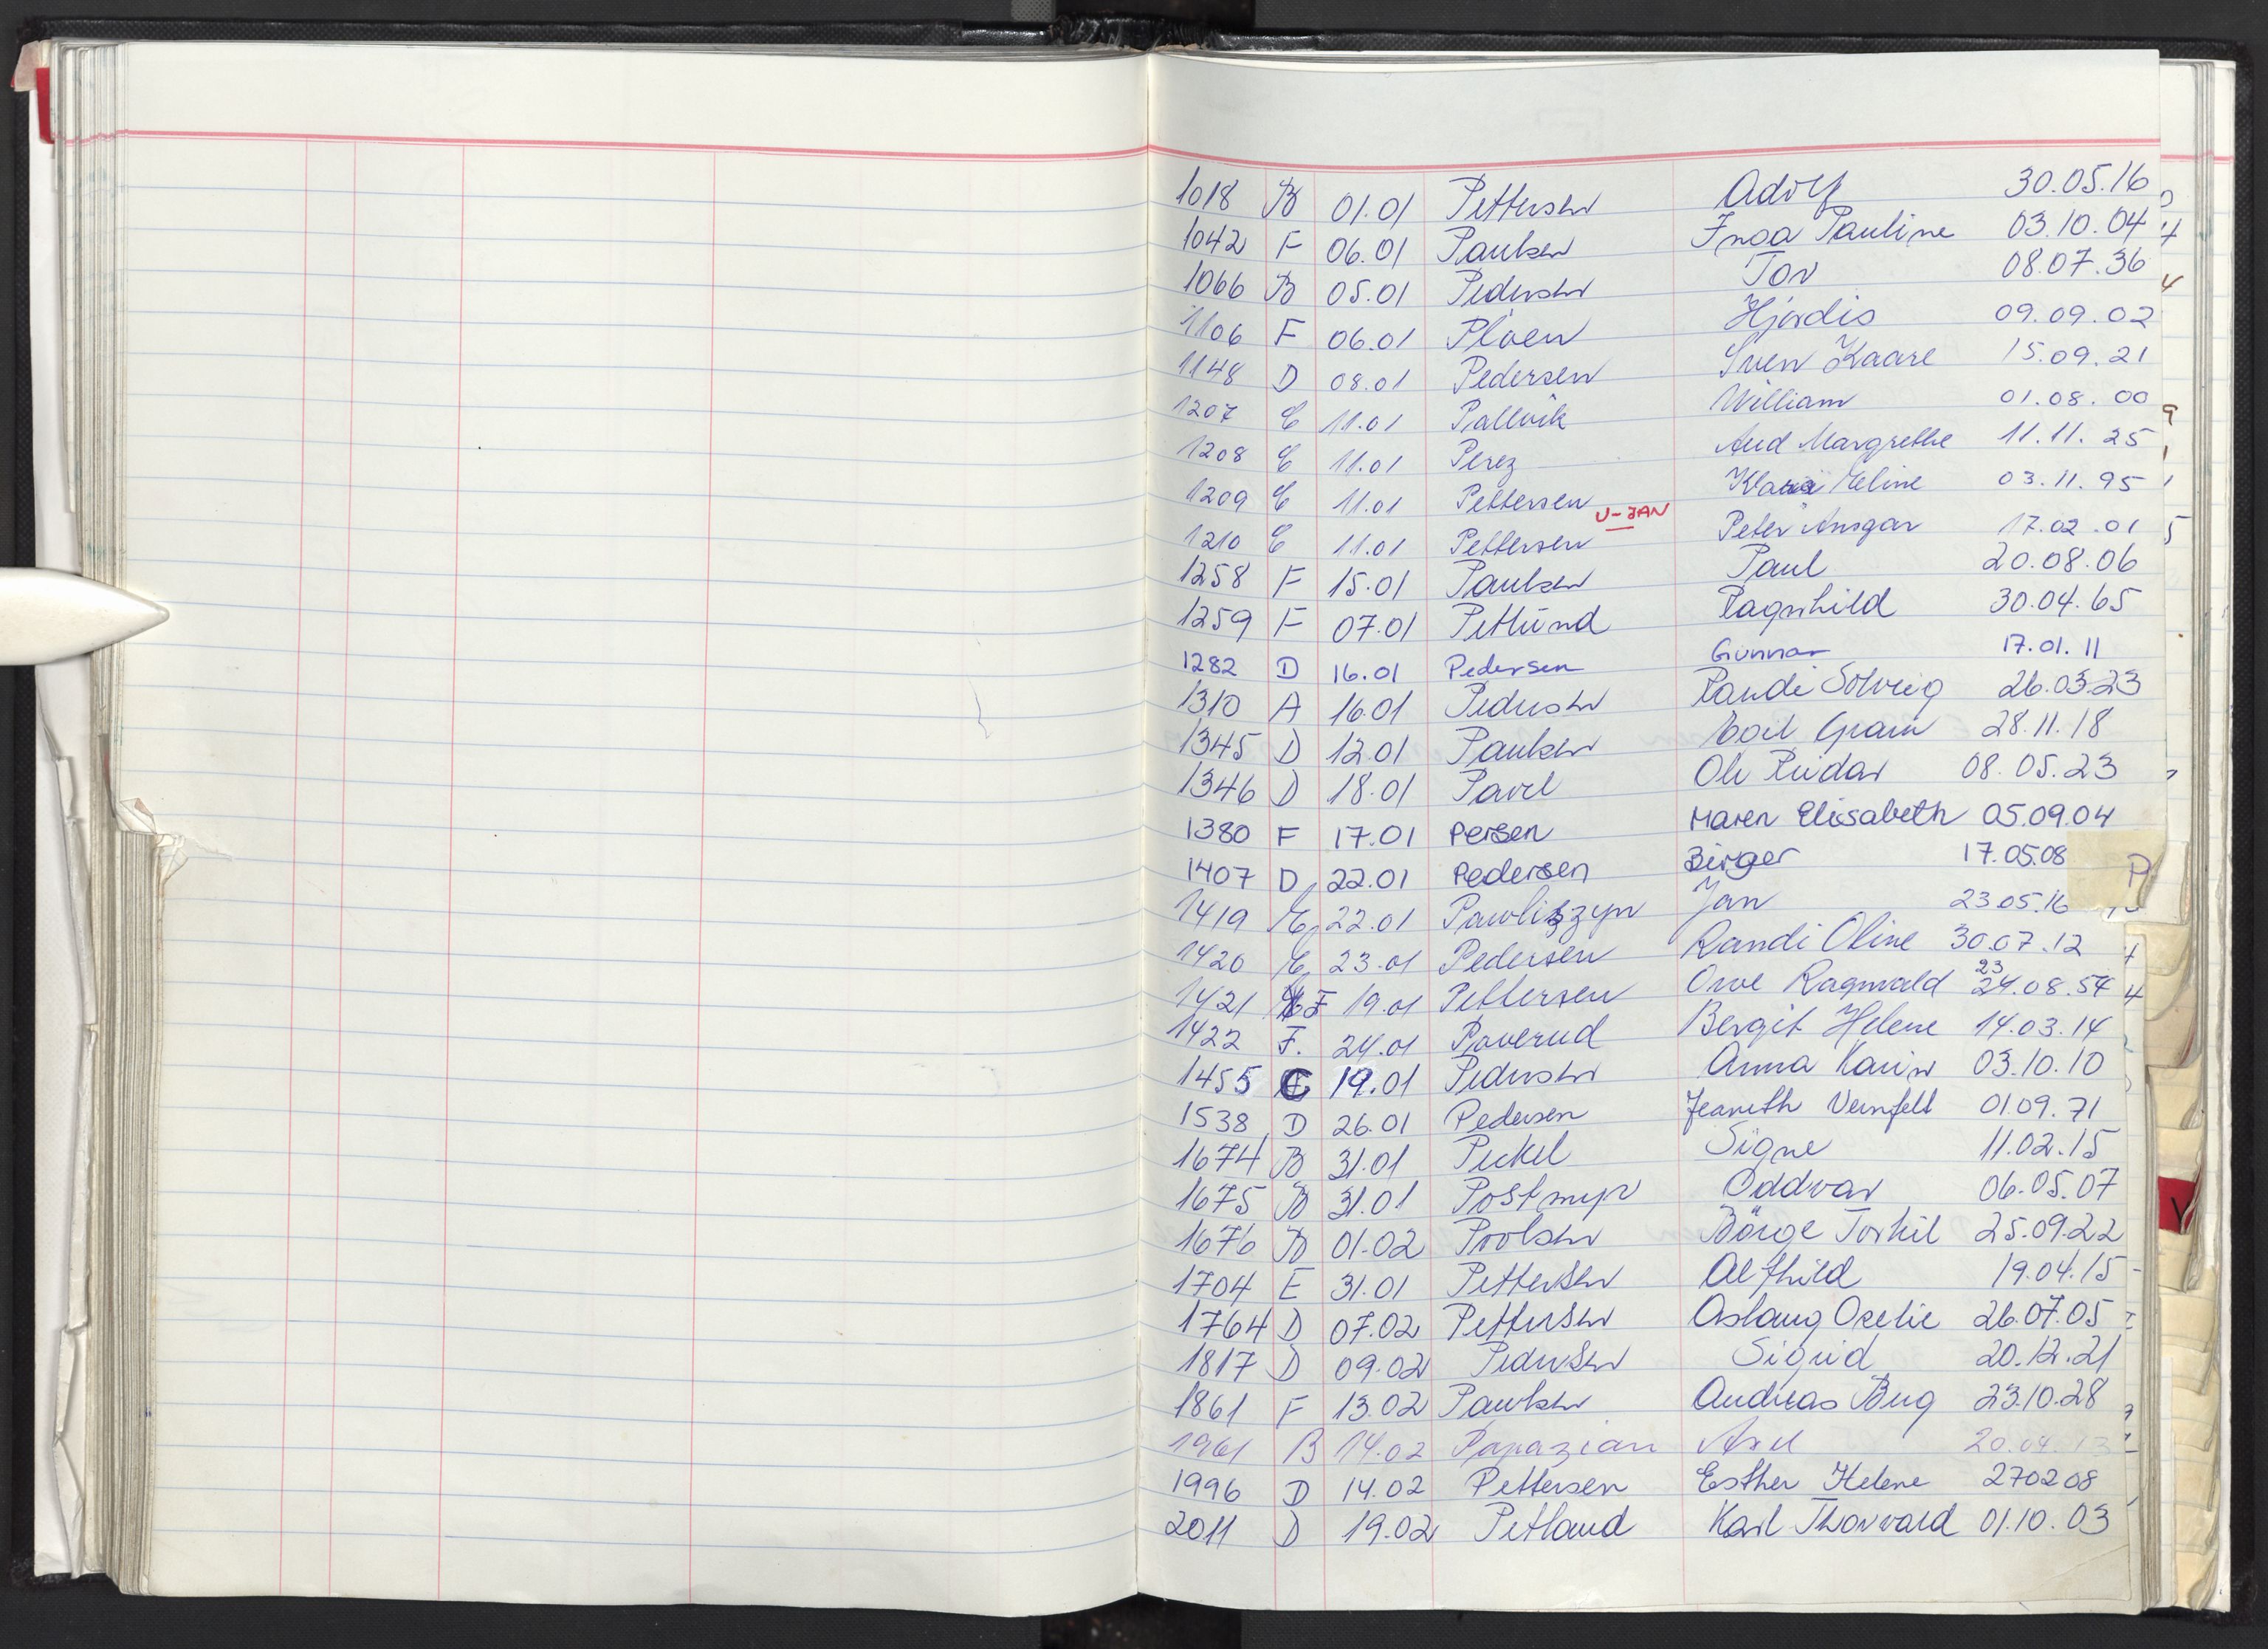 1018 B 01.01 Pettersen Adolf 30.05.16
1042 F 06.01 Paulsen Inga Pauline 03.10.04
1066 B 05.01 Pedersen Tor 08.07.36
1106 F 06.01 Ploen Hjørdis 09.09.02
1148 D 08.01 Pedersen Sven Kaare 15.09.21
1207 E 11.01 Pallvik William 01.08.00
1208 E 11.01 Perez Aud Margrethe 11.11.25
1209 E 11.01 Pettersen Eline 03.11.95
U-JAN
1210 E 11.01 Pettersen Peter Ansgar 17.02.01
1258 F 15.01 Paulsen Paul 20.08.06
1259 F 07.01 Petlund Ragnhild 30.04.65
1282 D 16.01 Pedersen Gunnar 17.01.11
1310 A 16.01 Pedersen Randi Solveig 26.03.23
1345 D 12.01 Paulsen Gram 28.11.18
1346 D 18.01 Pavel Ole Reidar 08.05.23
1380 F 17.01 Persen Maren Elisabeth 05.09.04
1407 D 22.01 Pedersen Birger 17.05.08
P
1419 E 22.01 Jan 23.05.16
1420 E 23.01 Pedersen Randi Oline 30.07.12
23
1421 F 19.01 Pettersen Ove Ragnvald 24.08.54
1422 F. 24.01 Paverud Bergit Helene 14.03.14
1455 C 19.01 Pedersen Anna Karin 03.10.10
1538 D 26.01 Pedersen Jeaneth 01.09.71
1674 B 31.01 Peckel Signe 11.02.15
1675 B 31.01 Postmyr Oddvar 06.05.07
1676 B 01.02 Børge Torkil 25.09.22
1704 E 31.01 Pettersen Alfhild 19.04.15
1764 D 07.02 Pettersen Aslaug Oselie 26.07.05
1817 D 09.02 Pedersen Sigrid 20.12.21
1861 F 13.02 Paulsen Andreas Berg 23.10.28
1961 B 14.02 Papazian Axel 20.04.13
1996 D 14.02 Pettersen Esther Helene 270208
2011 D 19.02 Petland Karl Thorvald 01.10.03